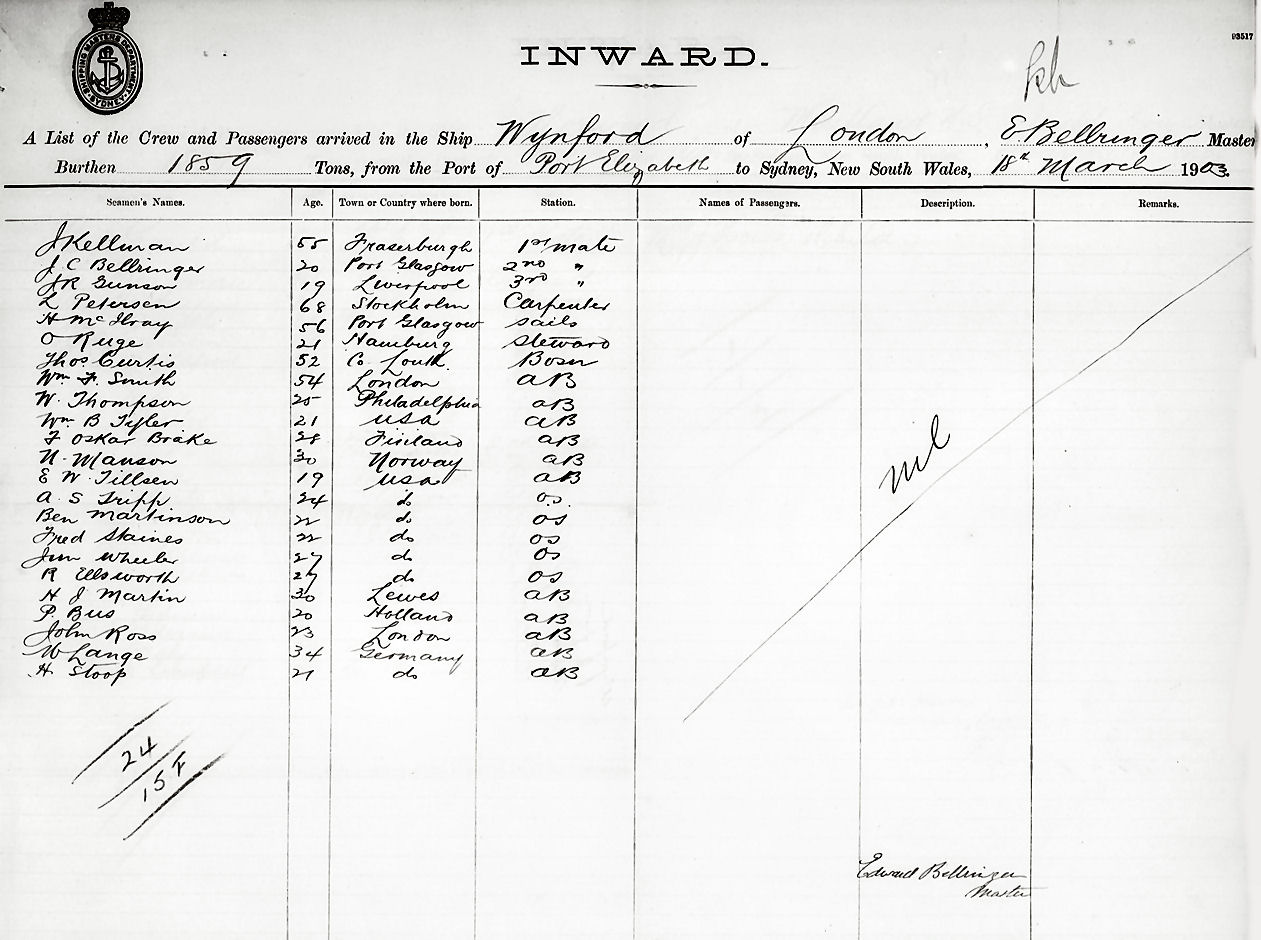 SHIPPING MASTERS DEPARTMENT · SYDNEY ·
93517
INWARD.
A List of the Crew and Passengers arrived in the Ship Wynford of London, E. Bellringer Master
Burthen 1859 Tons, from the Port of Port Elizabeth to Sydney, New South Wales, 18th March 1903.
Seamen's Names. Age. Town or Country where born. Station. Names of Passengers. Description. Remarks.
J Kellman 55 Fraserburgh 1st mate
J C Bellringer 20 Port Glasgow 2nd "
J R Gunson 19 Liverpool 3rd "
L Petersen 68 Stockholm Carpenter
H McIlray 56 Port Glasgow sails
O Ruge 21 Hamburg Steward
Thos Curtis 52 Co. Louth. Bosn
Wm F. Smith 54 London aB
W. Thompson 25 Philadelphia aB
Wm B Tyler 21 usa aB
F Oskar Brake 28 Finland aB
N. Manson 30 Norway aB
E W Tillsen 19 usa aB
A. S Tripp 24 do os.
Ben Martinson 22 do os
Fred Staines 22 do os
Jim Wheeler 27 do os
R Ellsworth 27 do os
H J Martin 30 Lewes aB
P. Bus 20 Holland aB
John Ross 23 London aB
W Lange 34 Germany aB
H. Stoop 21 do aB
nil
24
15 F
Edward Bellringer
Master